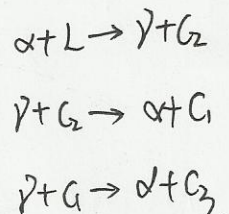 α+L→γ+C₂
γ+C₂→α+C₁
γ+C₁→α+C₃